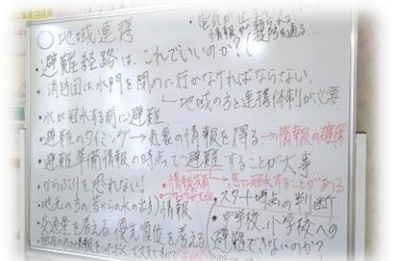 ○地域連携
・電気が止
情報が
・避難経路は、これでいいのか?
・消防団は、水門を閉めに行かなければならない
└地域の方と連携体制が必要
・水が冠水する前に避難
・避難のタイミング→気象の情報を得る→情報の確保
・避難準備情報の時点で避難することが大事
・からぶりを恐れない!
・情報
→急に冠水することがある
・地元の方の昔からの水の出方)情報
・スタート時点の判断
・交通量を考える 優先順位を考える
・中学校、小学校への
避難できないのか?